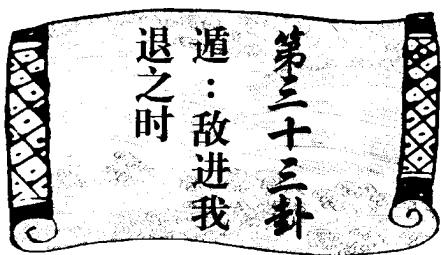 第三十三卦
遁：敌进我
退之时